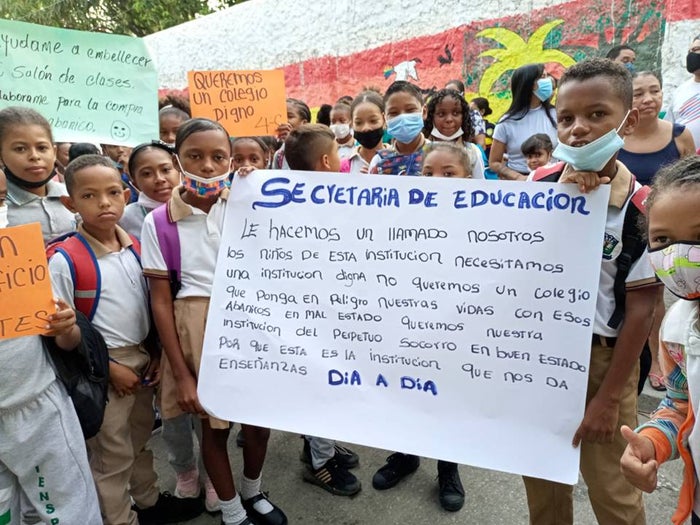 yudame a embellecer
Salón de clases.
laborame para la compra
abanico.
QUEREMOS
UN COLEGIO
DIGNO 4-C
FICIO
TES
SECRETARIA DE EDUCACION
LE HACEMOS UN LLAMADO NOSOTROS
LOS NIÑOS DE ESTA INSTITUCION NECESITAMOS
UNA INSTITUCION DIGNA NO QUEREMOS UN COLEGIO
QUE PONGA EN PELIGRO NUESTRAS VIDAS CON ESOS
ABANICOS EN MAL ESTADO QUEREMOS NUESTRA
INSTITUCION DEL PERPETUO SOCORRO EN BUEN ESTADO
POR QUE ESTA ES LA INSTITUCION QUE NOS DA
ENSEÑANZAS DIA A DIA